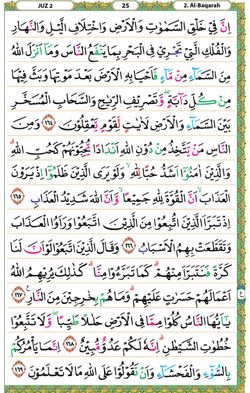 JUZ 2 25 2. Al-Baqarah
اِنَّ فِيْ خَلْقِ السَّمٰوٰتِ وَالْاَرْضِ وَاخْتِلَافِ الَّيْلِ وَالنَّهَارِ
وَالْفُلْكِ الَّتِيْ تَجْرِيْ فِى الْبَحْرِ بِمَا يَنْفَعُ النَّاسَ وَمَآ اَنْزَلَ اللّٰهُ
مِنَ السَّمَآءِ مِنْ مَّآءٍ فَاَحْيَا بِهِ الْاَرْضَ بَعْدَ مَوْتِهَا وَبَثَّ فِيْهَا
مِنْ كُلِّ دَآبَّةٍ ۖ وَّتَصْرِيْفِ الرِّيٰحِ وَالسَّحَابِ الْمُسَخَّرِ
بَيْنَ السَّمَآءِ وَالْاَرْضِ لَاٰيٰتٍ لِّقَوْمٍ يَّعْقِلُوْنَ ١٦٤ وَمِنَ
النَّاسِ مَنْ يَّتَّخِذُ مِنْ دُوْنِ اللّٰهِ اَنْدَادًا يُّحِبُّوْنَهُمْ كَحُبِّ اللّٰهِ ۗ
وَالَّذِيْنَ اٰمَنُوْٓا اَشَدُّ حُبًّا لِّلّٰهِ ۗ وَلَوْ يَرَى الَّذِيْنَ ظَلَمُوْٓا اِذْ يَرَوْنَ
الْعَذَابَۙ اَنَّ الْقُوَّةَ لِلّٰهِ جَمِيْعًا ۙ وَّاَنَّ اللّٰهَ شَدِيْدُ الْعَذَابِ ١٦٥
اِذْ تَبَرَّاَ الَّذِيْنَ اتُّبِعُوْا مِنَ الَّذِيْنَ اتَّبَعُوْا وَرَاَوُا الْعَذَابَ
وَتَقَطَّعَتْ بِهِمُ الْاَسْبَابُ ١٦٦ وَقَالَ الَّذِيْنَ اتَّبَعُوْا لَوْ اَنَّ لَنَا
كَرَّةً فَنَتَبَرَّاَ مِنْهُمْ كَمَا تَبَرَّءُوْا مِنَّا ۗ كَذٰلِكَ يُرِيْهِمُ اللّٰهُ
اَعْمَالَهُمْ حَسَرٰتٍ عَلَيْهِمْ ۗ وَمَا هُمْ بِخٰرِجِيْنَ مِنَ النَّارِ ١٦٧
يٰٓاَيُّهَا النَّاسُ كُلُوْا مِمَّا فِى الْاَرْضِ حَلٰلًا طَيِّبًا ۖ وَّلَا تَتَّبِعُوْا
خُطُوٰتِ الشَّيْطٰنِ ۗ اِنَّهٗ لَكُمْ عَدُوٌّ مُّبِيْنٌ ١٦٨ اِنَّمَا يَأْمُرُكُمْ
بِالسُّوْۤءِ وَالْفَحْشَآءِ وَاَنْ تَقُوْلُوْا عَلَى اللّٰهِ مَا لَا تَعْلَمُوْنَ ١٦٩